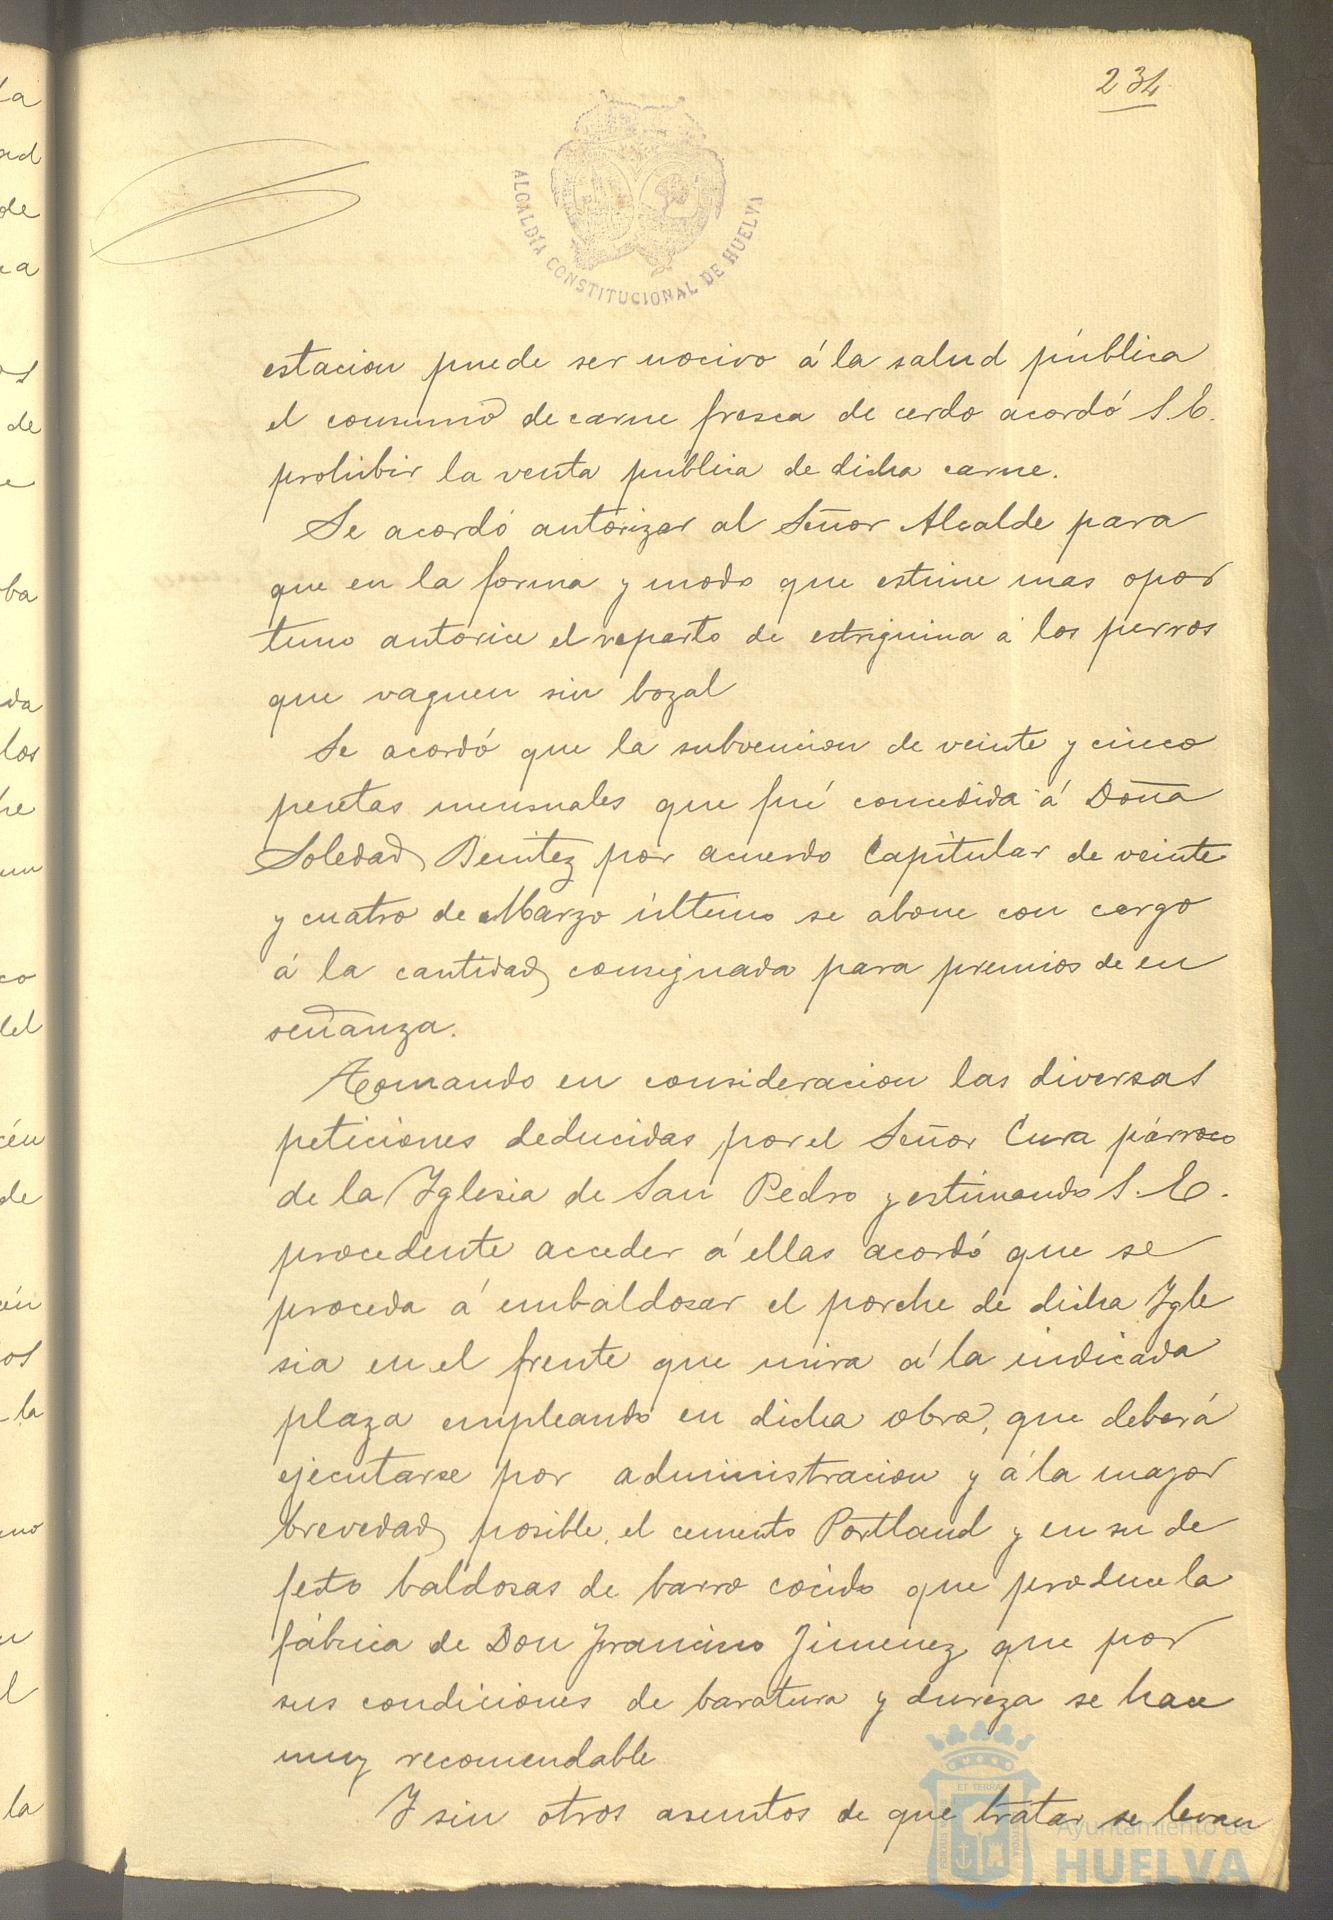 234
ALCALDÍA CONSTITUCIONAL DE HUELVA
estacion puede ser nocivo á la salud pública
el consumo de carne fresca de cerdo acordó S. E.
prohibir la venta pública de dicha carne.
Se acordó autorizar al Señor Alcalde para
que en la forma y modo que estime mas opor
tuno autorice el reparto de estrignina á los perros
que vaguen sin bozal
Se acordó que la subvencion de veinte y cinco
pesetas mensuales que fué concedida á Doña
Soledad Benitez por acuerdo Capitular de veinte
y cuatro de Marzo último se abone con cargo
á la cantidad consignada para premios de en
señanza.
Tomando en consideracion las diversas
peticiones deducidas por el Señor Cura párroco
de la Iglesia de San Pedro y estimando S. E.
procedente acceder á ellas acordó que se
proceda á embaldosar el porche de dicha Igle
sia en el frente que mira á la indicada
plaza empleando en dicha obra, que deberá
ejecutarse por administracion y á la mayor
brevedad posible, el cemento Portland y en su de
fecto baldosas de barro cocido que produce la
fábrica de Don Francisco Jimenez que por
sus condiciones de baratura y dureza se hace
muy recomendable
Y sin otros asuntos de que tratar se levan
Ayuntamiento de
HUELVA